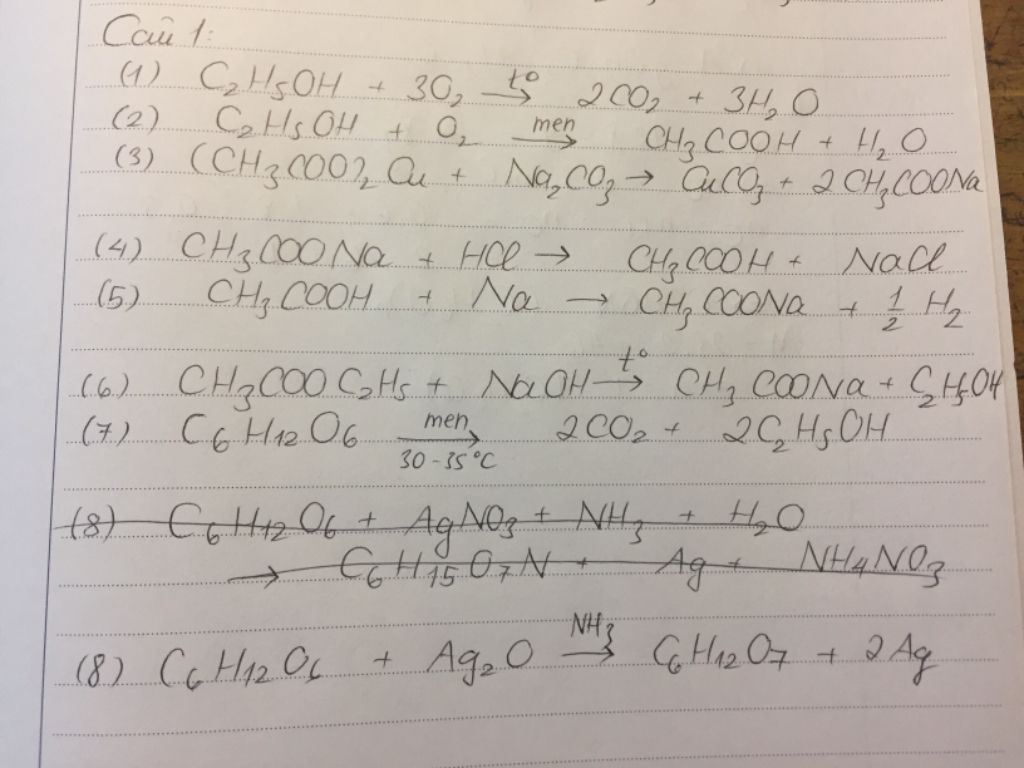 Câu 1:
(1) C₂H₅OH + 3O₂ →(t°) 2CO₂ + 3H₂O
(2) C₂H₅OH + O₂ →(men) CH₃COOH + H₂O
(3) (CH₃COO)₂Cu + Na₂CO₃ → CuCO₃ + 2CH₃COONa
(4) CH₃COONa + HCl → CH₃COOH + NaCl
(5) CH₃COOH + Na → CH₃COONa + 1/2 H₂
(6) CH₃COOC₂H₅ + NaOH →(t°) CH₃COONa + C₂H₅OH
(7) C₆H₁₂O₆ →(men, 30-35°C) 2CO₂ + 2C₂H₅OH
(8) C₆H₁₂O₆ + AgNO₃ + NH₃ + H₂O
→ C₆H₁₅O₇N + Ag + NH₄NO₃
(8) C₆H₁₂O₆ + Ag₂O →(NH₃) C₆H₁₂O₇ + 2Ag